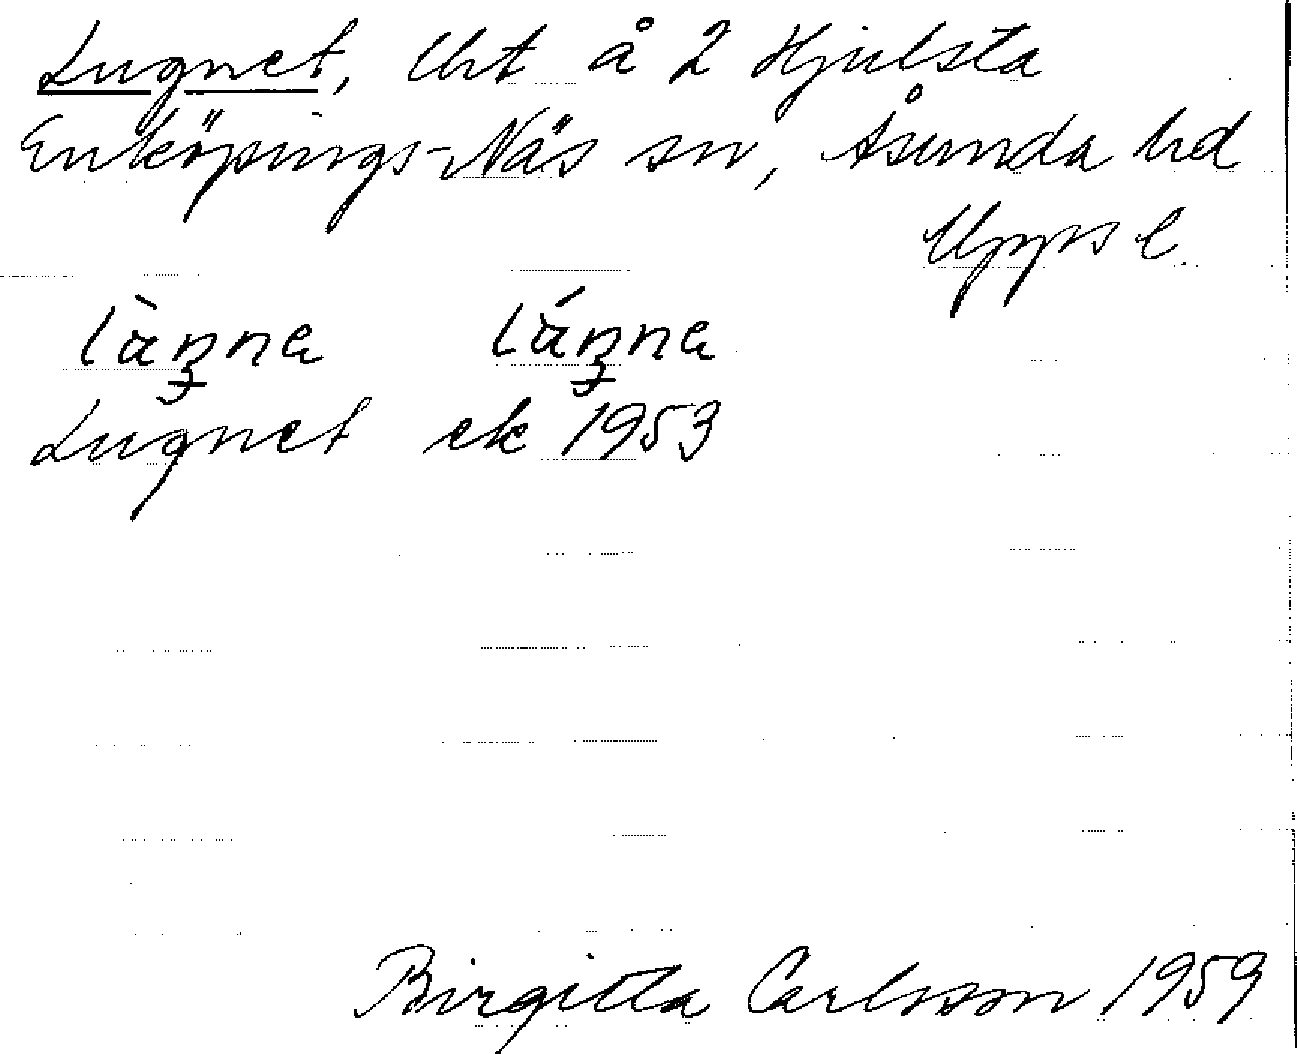 Lugnet, Urt å 2 Hjulsta
Enköpings-Näs sn, Åsunda hd
Upps l.
Lugnet ek 1953
Birgitta Carlsson 1959